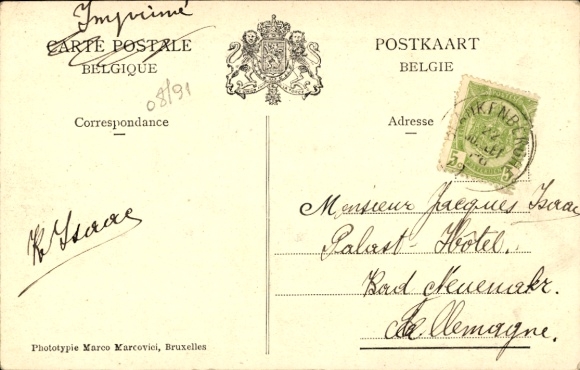 Imprimé
CARTE POSTALE
BELGIQUE
POSTKAART
BELGIE
08/91
Correspondance
Adresse
5
5
K Isaac
Monsieur Jacques Isaac
Palast-Hôtel.
Bad Neuenahr.
Allemagne.
Phototypie Marco Marcovici, Bruxelles